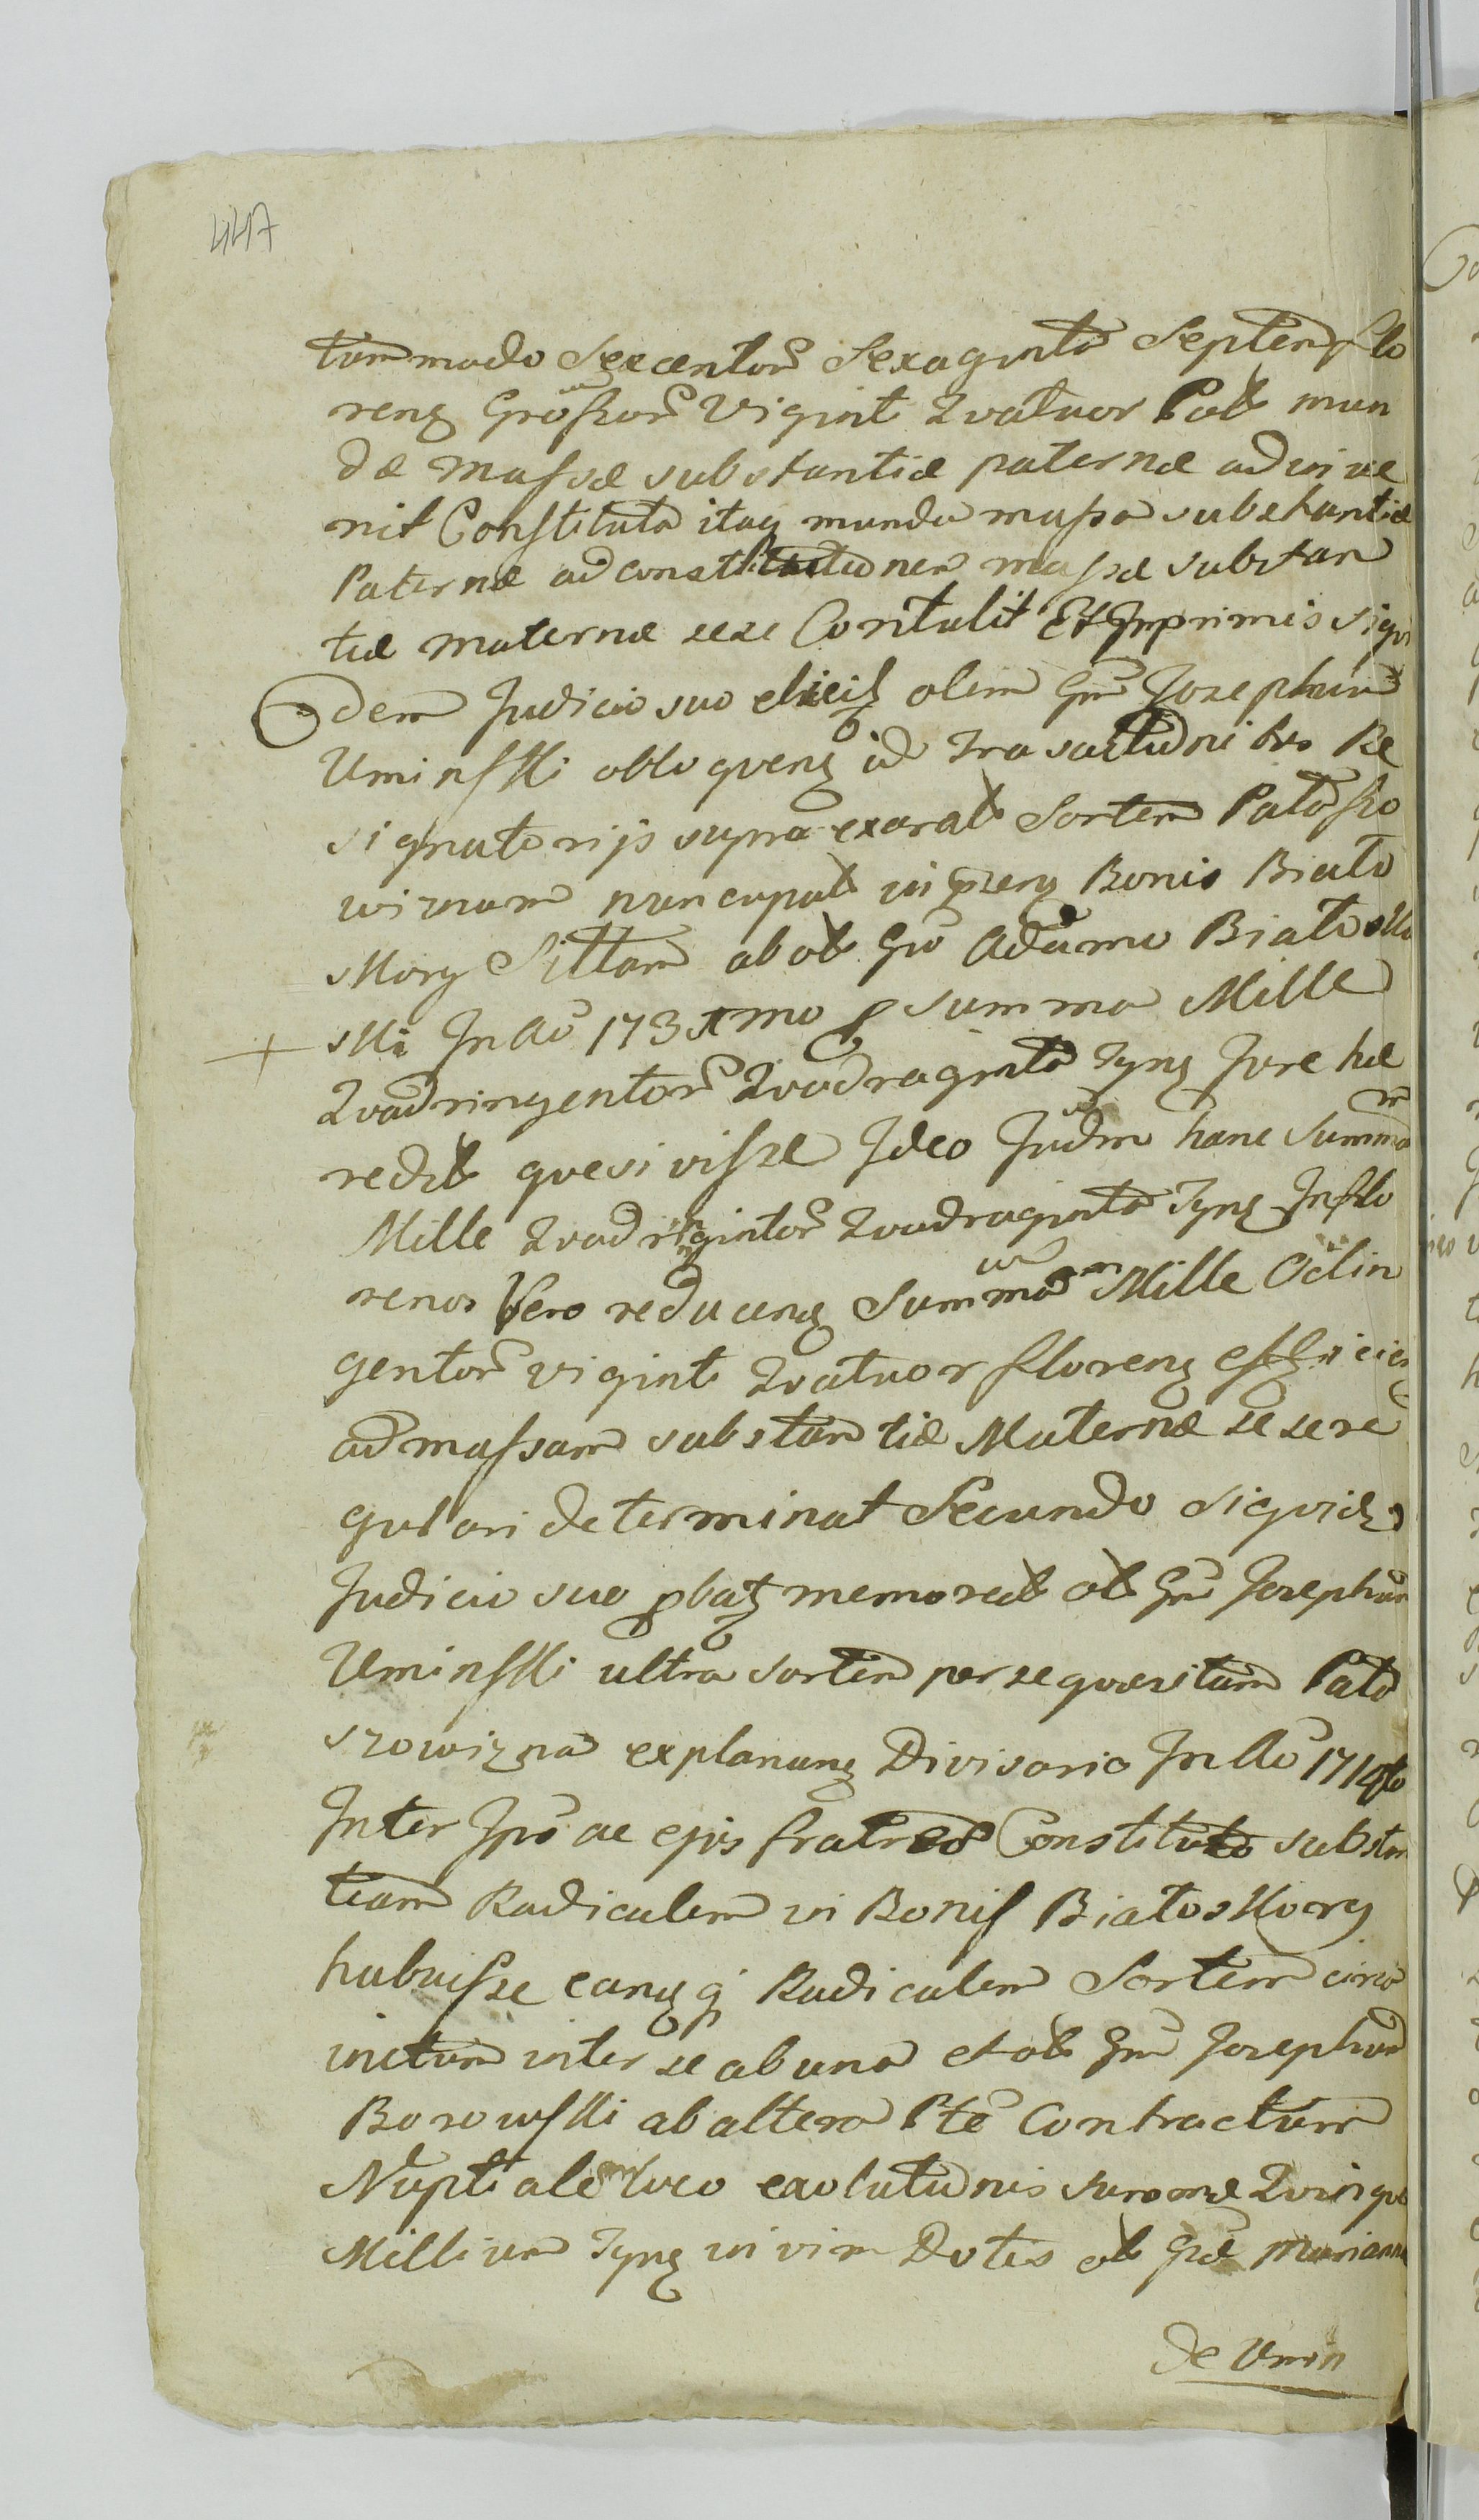 447
tum modo Sexcentor̃ Sexaginta Septem flo
renz Grosszor̃ Viginti Qvatuor Pol mun
dæ massæ substantiæ paternæ advive
nit Constituta itaq munda massa substantiæ
Paternæ ad constitutionem massæ substan
tiæ maternæ sese Contulit Et Imprimis siqvi
dem Judicio suo eliciẓ olim Gm̃ Josephum
Uminski obloqvenz id Transactionibs Re
signatorijs supra exarat Sortem Patoszo
wiznam nuncupat in pñenz Bonis Biało
skory Sittam ab ol Gõ Adamo Białosko
ski In Aõ 1731mo p summa Mille
Qvadringentor̃ Qvadraginta Tynẓ Jure hæ
redit qvesivisse Ideo Judm̃ hanc Summam
Mille Qvadringintor̃ Qvadraginta Tynẓ In flo
renos Vero reducenẓ Summam Mille Octin
gentor̃ viginti Qvatuor florenẓ efficien
ad massam substantiæ Maternæ se se re
gulari determinat Secundo siqvidẓ
Judicio suo pbatẓ memorat ol Gm̃ Josephum
Uminski ultra sortem per se qvæsitam Pato
szowizna explananẓ Divisorio In Aõ 1719no
Inter Ipõ ac ejus fratres Constituto substan
tiam Radicalem in Bonis Białoskory
habuisse eanẓ q Radicalem Sortem circa
initum inter se ab una et ol Gm̃ Josephum
Borowski ab altera Pte Contractum
Nuptialem loco exolutionis summæ Qvinqve
Millium Tynẓ in vim Dotis ol Gæ Marianna
de Umin